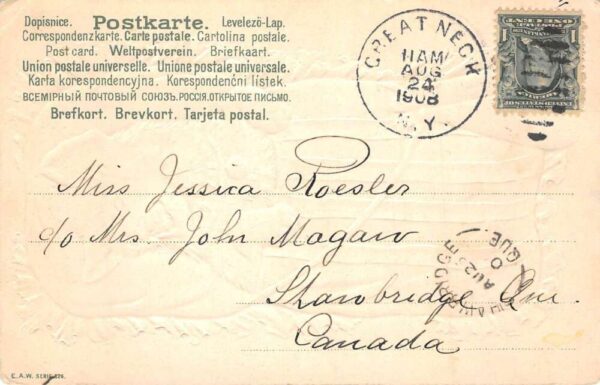 Dopisnice. Postkarte. Levelező-Lap.
Correspondenzkarte. Carte postale. Cartolina postale.
Post card. Weltpostverein. Briefkaart.
Union postale universelle. Unione postale universale.
Karta korespondencyjna. Korespondenční lístek.
ВСЕМІРНЫЙ ПОЧТОВЫЙ СОЮЗЪ. РОССІЯ. ОТКРЫТОЕ ПИСЬМО.
Brefkort. Brevkort. Tarjeta postal.
GREAT NECK
11AM
AUG
24
1908
N.Y.
1 1
Miss Jessica Roesler
c/o Mrs. John Magaw
Shawbridge Que.
Canada
SHAWBRIDGE
AU 25
QUE
C.A.W. SERIE